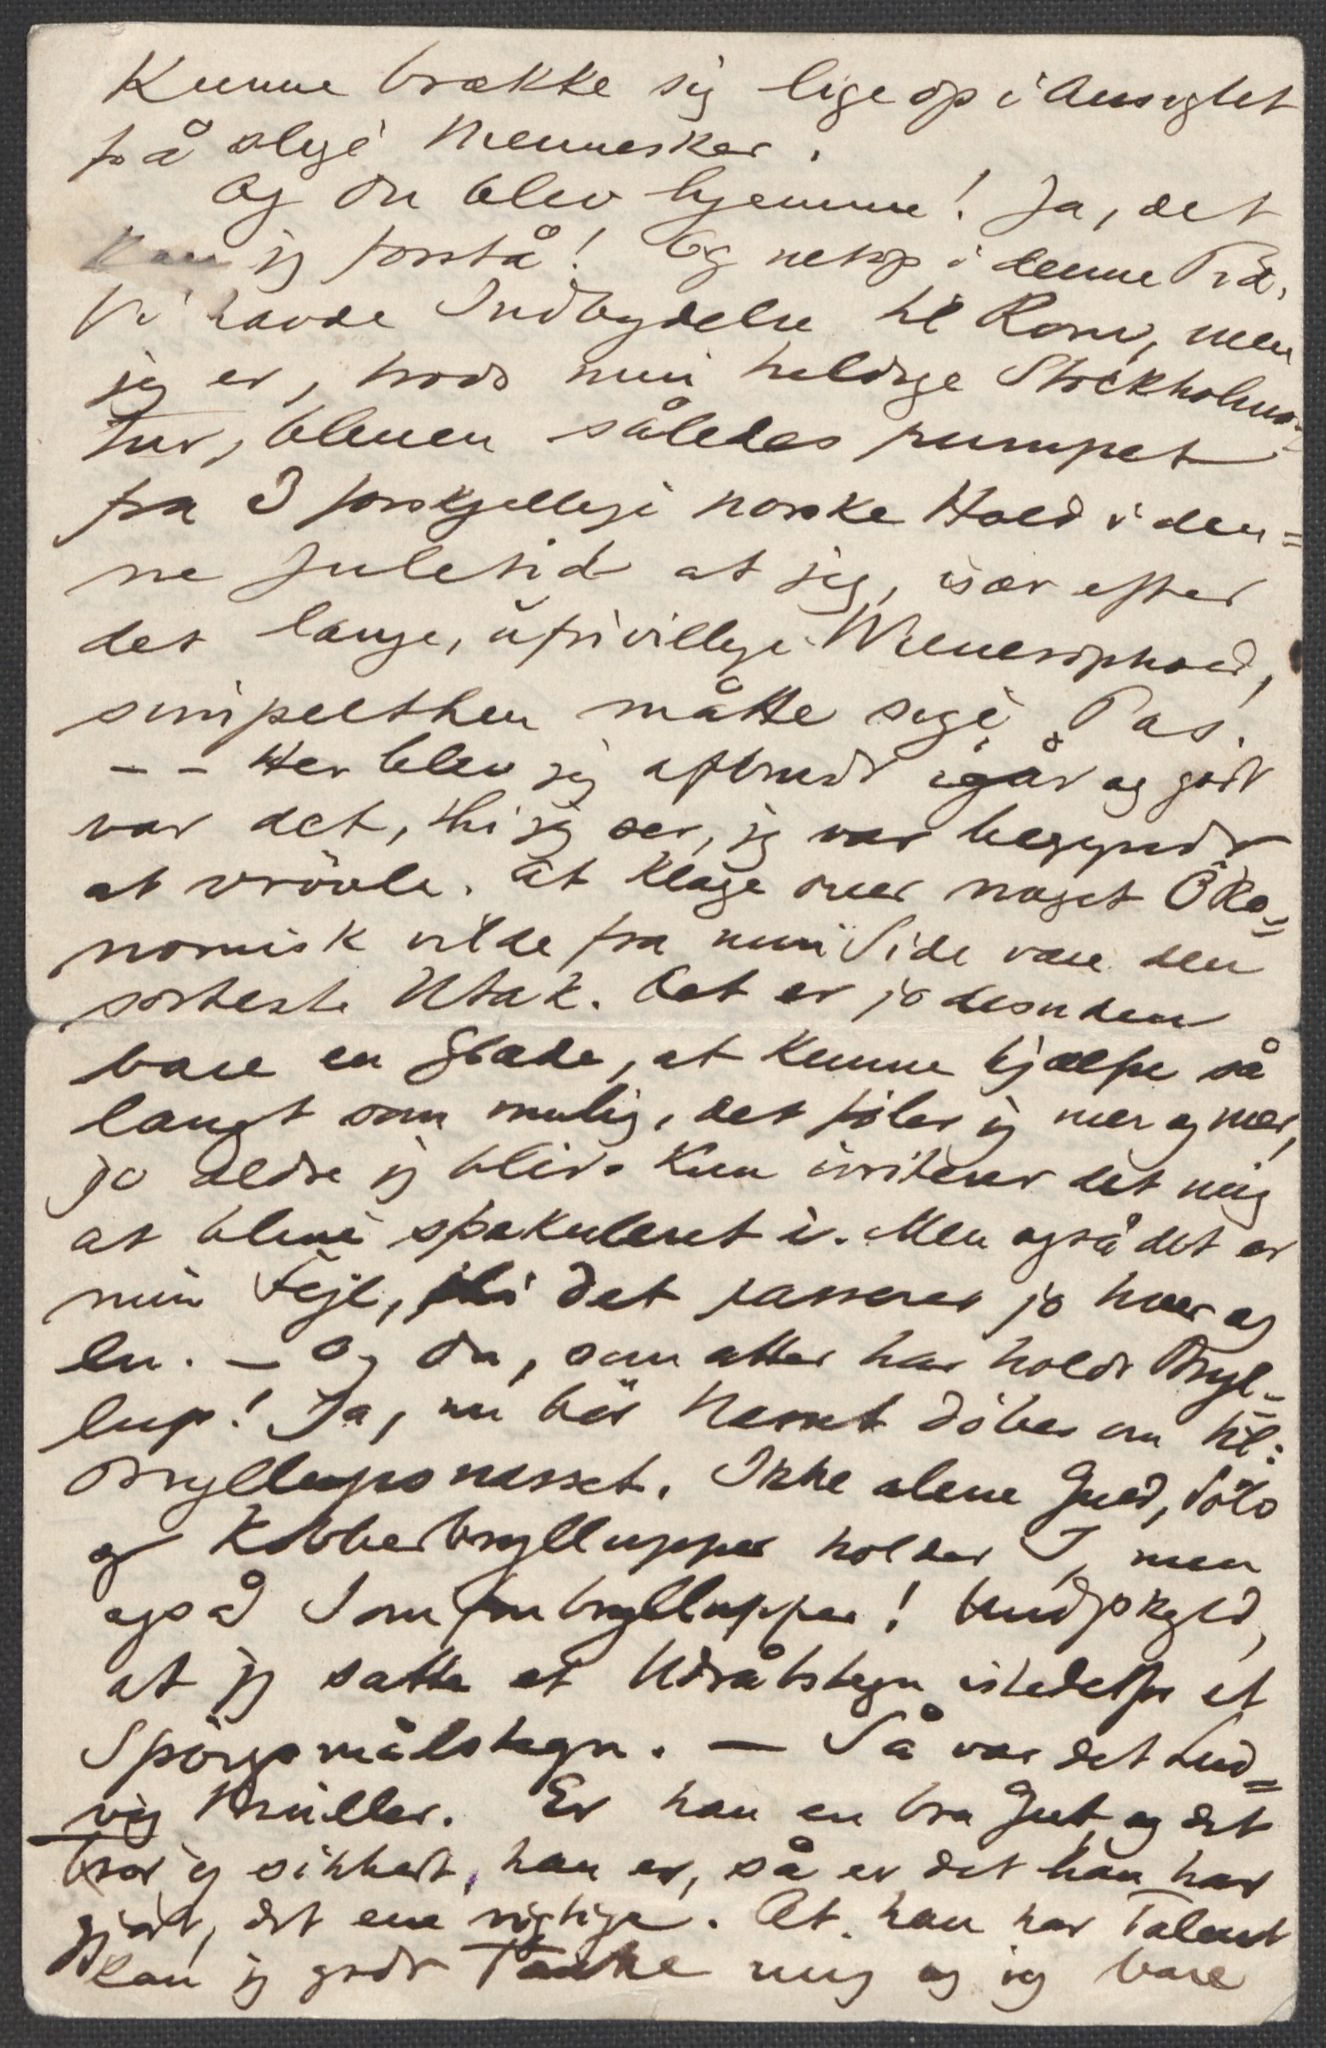 Kunne brække sig lige op i Ansigtet
på slige Mennesker.
Og Du blev hjemme! Ja, det
kan jeg forstå! Og netop i denne Tid.
Vi havde Indbydelse til Rom, men
jeg er, trods min heldige Stockholms-
Tur, bleven således pumpet
fra 3 forskjellige norske Hold i den=
ne Juletid at jeg, især efter
det lange, ufrivillige Wienerophold,
simpelthen måtte sige Pas.
-- Her blev jeg afbrudt igår og godt
var det, thi jeg ser, jeg var begyndt
at vrövle. At klage over noget Öko=
nomisk vilde fra min Side være den
sorteste Utak. Det er jo desuden
bare en Glæde, at kunne hjælpe så
langt som mulig, det föler jeg mer og mer,
jo ældre jeg blir. Kun irriterer det mig
at blive spekuleret i. Men også det er
min Fejl, thi det passerer jo hver og
en. — Og Du, som atter har holdt Bryl=
lup! Ja, nu bör Nesset döbes om til:
Bryllupsnesset. Ikke alene Guld, Sölv
og Kobberbryllupper holder I, men
også Jomfrubryllupper! Undskyld,
at jeg satte et Udråbstegn istedetfor et
Spörgsmålstegn. — Så var det Lud=
vig Müller. Er han en bra Gut, og det
tror jeg sikkert, han er, så er det han har
gjort, det ene rigtige. At han har Talent
kan jeg godt tænke mig og jeg bare